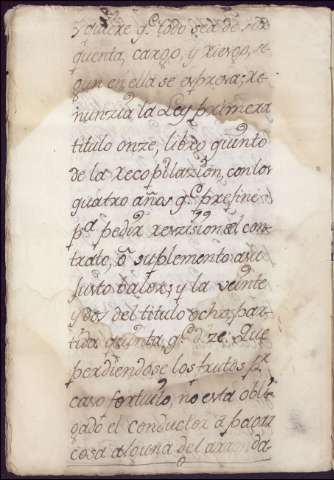 y quiere q.e todo sea de su
quenta, cargo, y riesgo, se
gun en ella se expresa; re
nunzia la Ley primera
titulo onze, libro quinto
de la recopilazion, con los
quatro años q.e prefine
p.a pedir revzision del con
trato, ō suplemento a su
justo valor; y la veinte
y dos del titulo ocho, par
tida quinta q.e dize, Que
perdiendose los frutos p.r
caso fortuito, no esta obli
gado el conductor a pagar
cosa alguna del arrenda